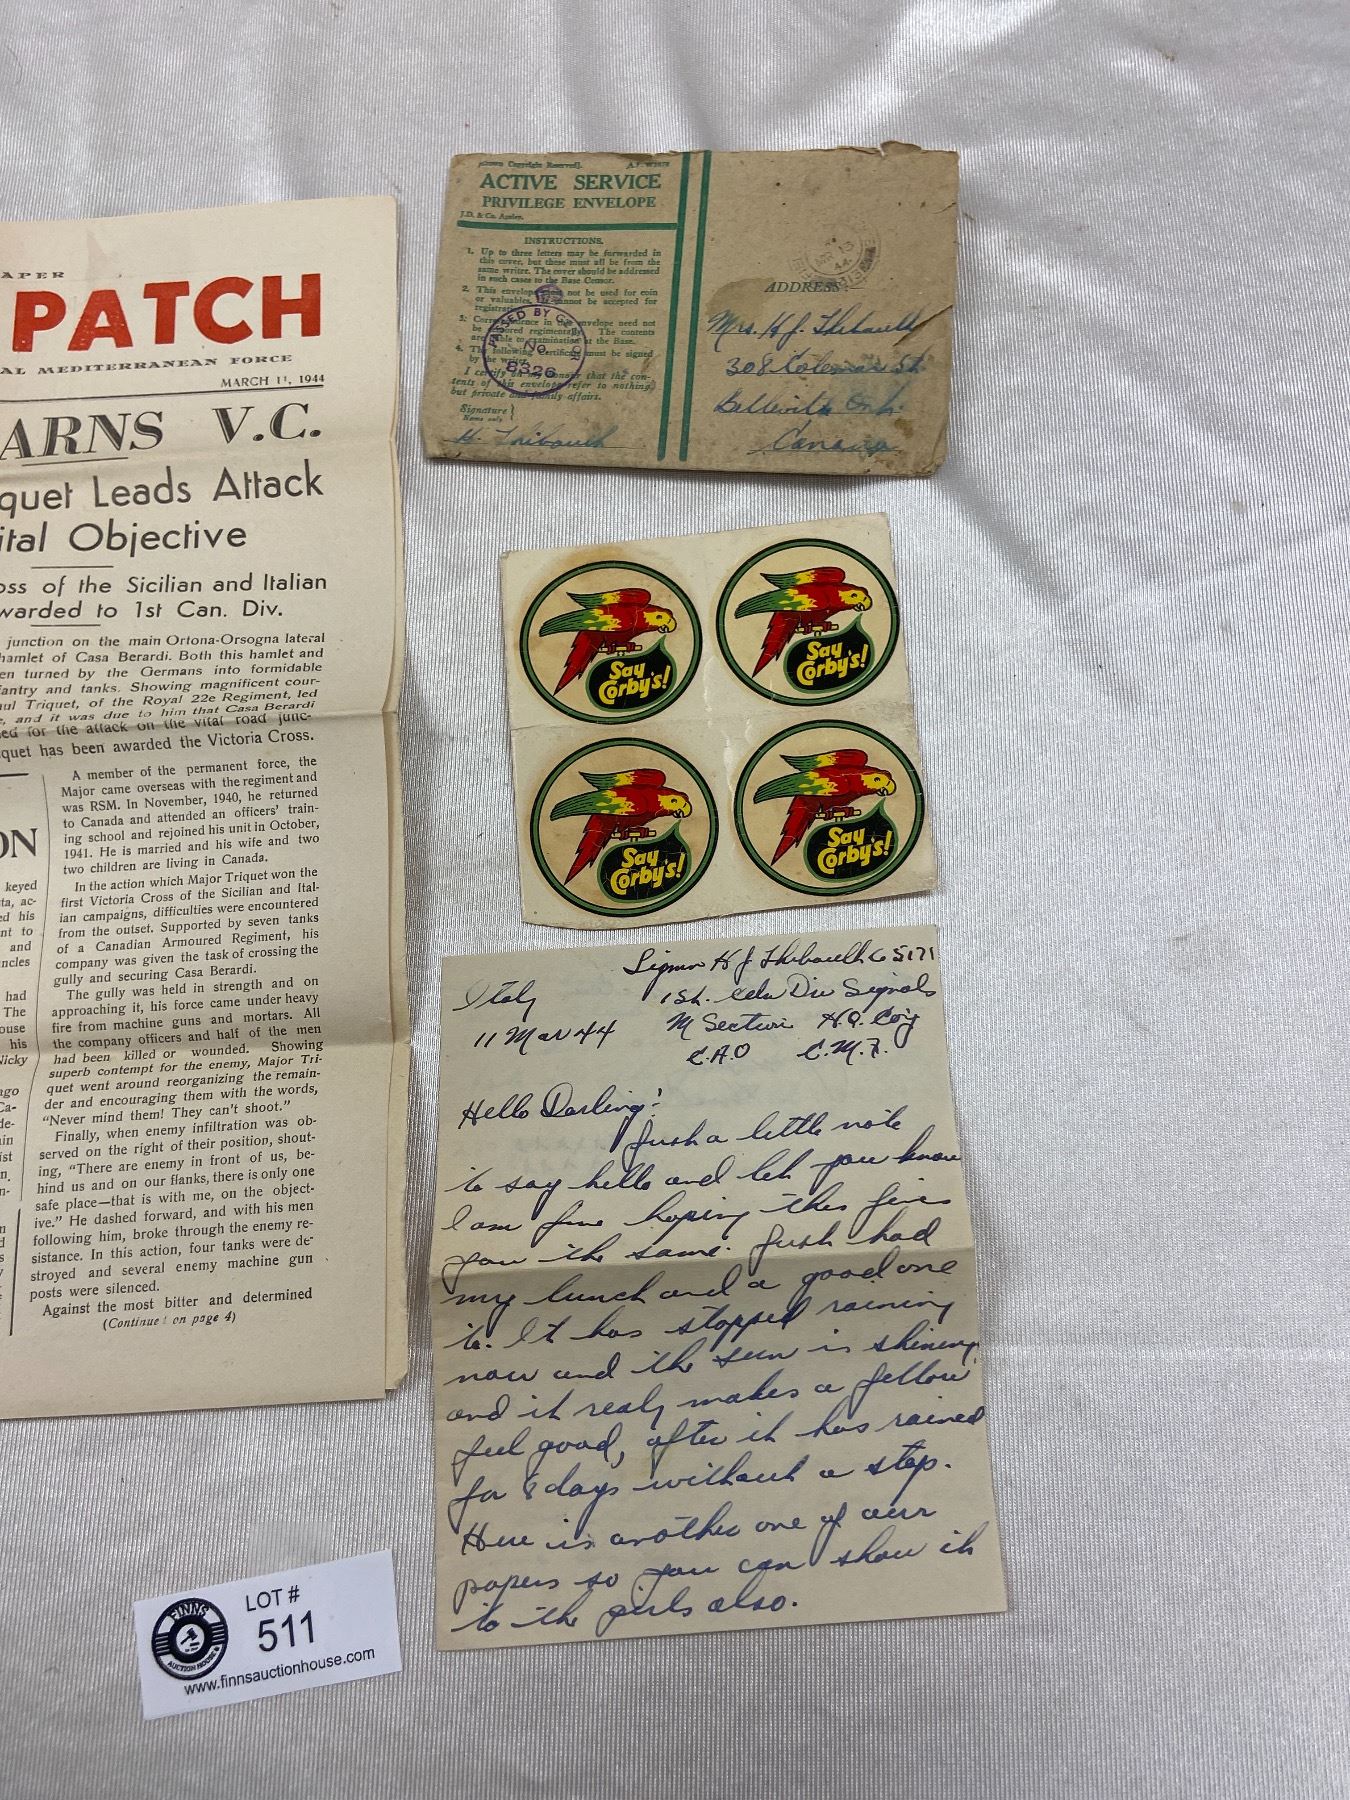 APER
PATCH
AL MEDITERRANEAN FORCE
MARCH 11, 1944
ARNS V.C.
quet Leads Attack
ital Objective
oss of the Sicilian and Italian
warded to 1st Can. Div.
junction on the main Ortona-Orsogna lateral
hamlet of Casa Berardi. Both this hamlet and
en turned by the Germans into formidable
fantry and tanks. Showing magnificent cour-
aul Triquet, of the Royal 22e Regiment, led
e, and it was due to him that Casa Berardi
ed for the attack on the vital road junc-
quet has been awarded the Victoria Cross.
ON
keyed
ta, ac-
ed his
nt to
and
ncles
had
The
ouse
his
Nicky
ago
Ca-
de-
ain
ist
n.
n-
A member of the permanent force, the
Major came overseas with the regiment and
was RSM. In November, 1940, he returned
to Canada and attended an officers' train-
ing school and rejoined his unit in October,
1941. He is married and his wife and two
two children are living in Canada.
In the action which Major Triquet won the
first Victoria Cross of the Sicilian and Ital-
ian campaigns, difficulties were encountered
from the outset. Supported by seven tanks
of a Canadian Armoured Regiment, his
company was given the task of crossing the
gully and securing Casa Berardi.
The gully was held in strength and on
approaching it, his force came under heavy
fire from machine guns and mortars. All
the company officers and half of the men
had been killed or wounded. Showing
superb contempt for the enemy, Major Tri-
quet went around reorganizing the remain-
der and encouraging them with the words,
"Never mind them! They can't shoot."
Finally, when enemy infiltration was ob-
served on the right of their position, shout-
ing, "There are enemy in front of us, be-
hind us and on our flanks, there is only one
safe place—that is with me, on the object-
ive." He dashed forward, and with his men
following him, broke through the enemy re-
sistance. In this action, four tanks were de-
stroyed and several enemy machine gun
posts were silenced.
Against the most bitter and determined
(Continued on page 4)
[Crown Copyright Reserved].
ACTIVE SERVICE
PRIVILEGE ENVELOPE
J.D. & Co.
INSTRUCTIONS.
1. Up to three letters may be forwarded in
this cover, but these must all be from the
same writer. The cover should be addressed
in such cases to the Base Censor.
2. This envelope must not be used for coin
or valuables. It cannot be accepted for
registration.
3. Correspondence in this envelope need not
be censored regimentally. The contents
are liable to examination at the Base.
4. The following Certificate must be signed
by the writer:
I certify on my honour that the con-
tents of this envelope refer to nothing
but private and family affairs.
Signature }
Name only
H. Thibault
PASSED BY CENSOR
No.
8326
13
44
ADDRESS:
Mrs. H J. Thibault
308 Coleman St.
Belleville Ont.
Canada
Say
Corby's!
Say
Corby's!
Say
Corby's!
Say
Corby's!
Signmn H J Thibault C 5171
Italy 1st. Cdn Div Signals
11 Mar 44 M Section H.Q. Coy
C.A.O C.M.F.
Hello Darling!
Just a little note
to say hello and let you know
I am fine hoping this finds
you the same. Just had
my lunch and a good one
to. It has stopped raining
now and the sun is shining
and it realy makes a fellow
feel good, after it has rained
for 8 days without a stop.
Here is another one of our
papers so you can show it
to the girls also.
FINNS
AUCTION HOUSE
LOT #
511
www.finnsauctionhouse.com